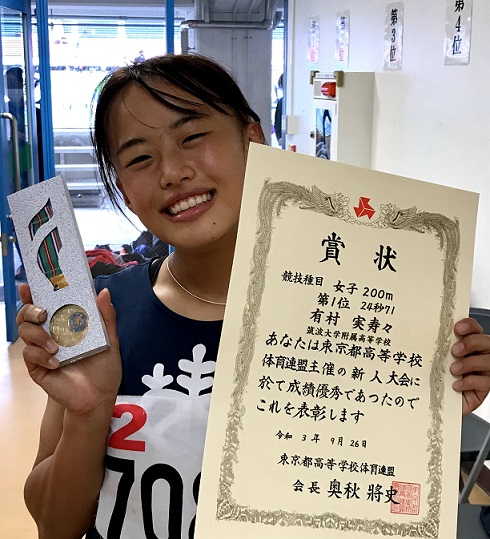 第3位
第4位
賞状
競技種目 女子 200m
第1位 24秒71
有村 実寿々
筑波大学附属高等学校
あなたは東京都高等学校
体育連盟主催の新人大会に
於て成績優秀であつたので
これを表彰します
令和 3年 9月26日
東京都高等学校体育連盟
会長 奥秋 將史
2
708